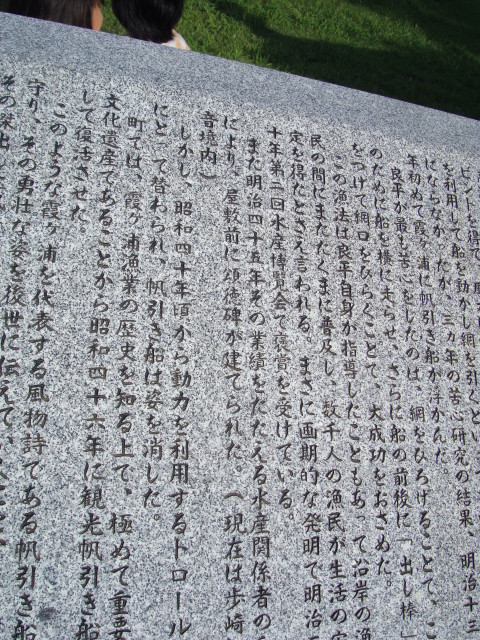 ヒントを得て、風
を利用して船を動かし網を引くとい
にならなかったが、三カ年の苦心研究の結果、明治十三
年初めて霞ヶ浦に帆引き船が浮かんだ。
良平が最も苦心をしたのは、網をひろげることで、こ
のために船を横に走らせ、さらに船の前後に「出し棒
をつけて網口をひらくことで、大成功をおさめた。
この漁法は良平自身が指導したこともあって沿岸の漁
民の間にまたたくまに普及し、数千人の漁民が生活の安
定を得たとさえ言われる。まさに画期的な発明で明治
十年第二回水産博覧会で褒賞を受けている。
また明治四十五年その業績をたたえる水産関係者の
により、屋敷前に頌徳碑が建てられた。(現在は歩崎
音境内)
しかし、昭和四十年頃から動力を利用するトロール
にとって替わられ、帆引き船は姿を消した。
町では、霞ヶ浦漁業の歴史を知る上で、極めて重要
文化遺産であることから昭和四十六年に観光帆引き船
して復活させた。
このような霞ヶ浦を代表する風物詩である帆引き船
守り、その勇壮な姿を後世に伝えて